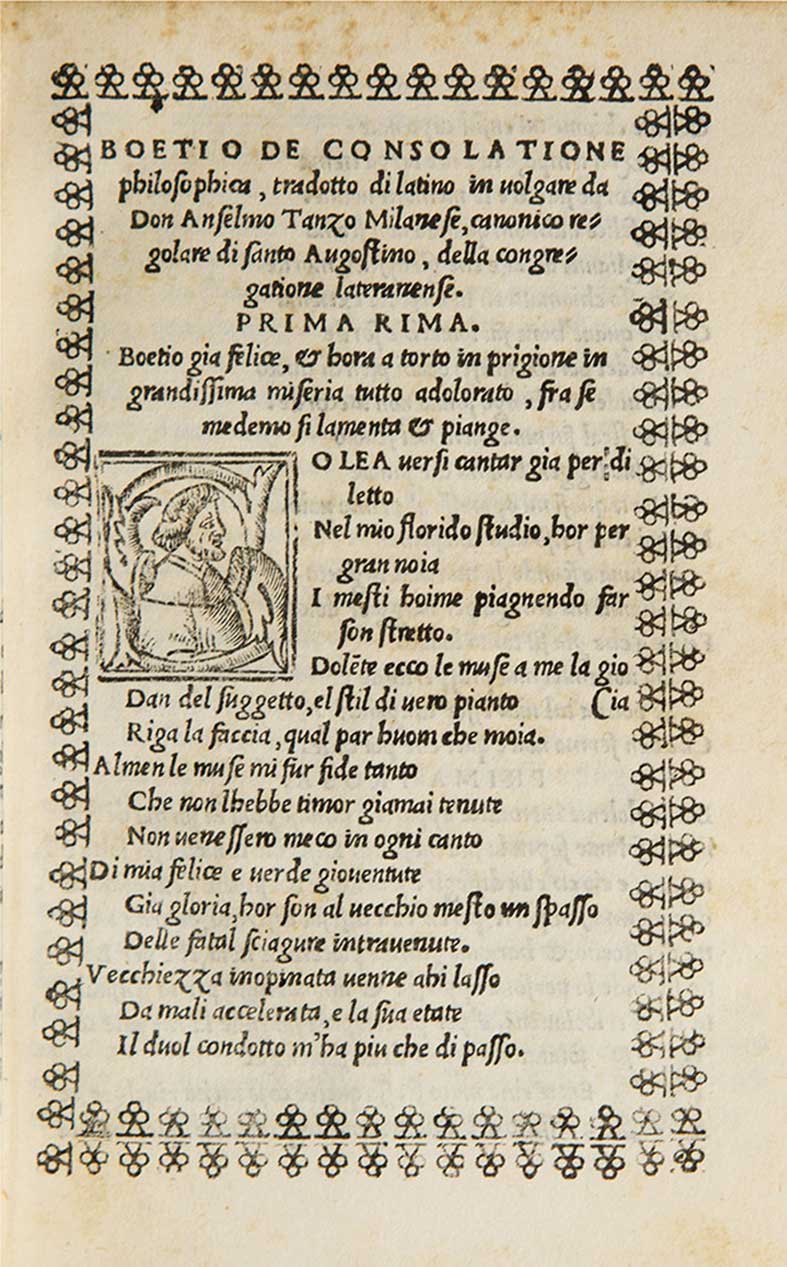 BOETIO DE CONSOLATIONE
philosophica, tradotto di latino in uolgare da
Don Anselmo Tanzo Milanese, canonico re=
golare di santo Augostino, della congre=
gatione lateranense.
PRIMA RIMA.
Boetio gia felice, & hora a torto in prigione in
grandissima miseria tutto adolorato, fra se
medemo si lamenta & piange.
SOLEA uersi cantar gia per di
letto
Nel mio florido studio, hor per
gran noia
I mesti hoime piagnendo far
son stretto.
Dolēte ecco le muse a me la gio
Dan del suggetto, el stil di uero pianto (ia
Riga la faccia, qual par huom che moia.
Almen le muse mi fur fide tanto
Che non lhebbe timor giamai tenute
Non uenessero meco in ogni canto
Di mia felice e uerde giouentute
Gia gloria, hor son al uecchio mesto un spasso
Delle fatal sciagure intrauenute.
Vecchiezza inopinata uenne ahi lasso
Da mali accelerata, e la sua etate
Il duol condotto m'ha piu che di passo.